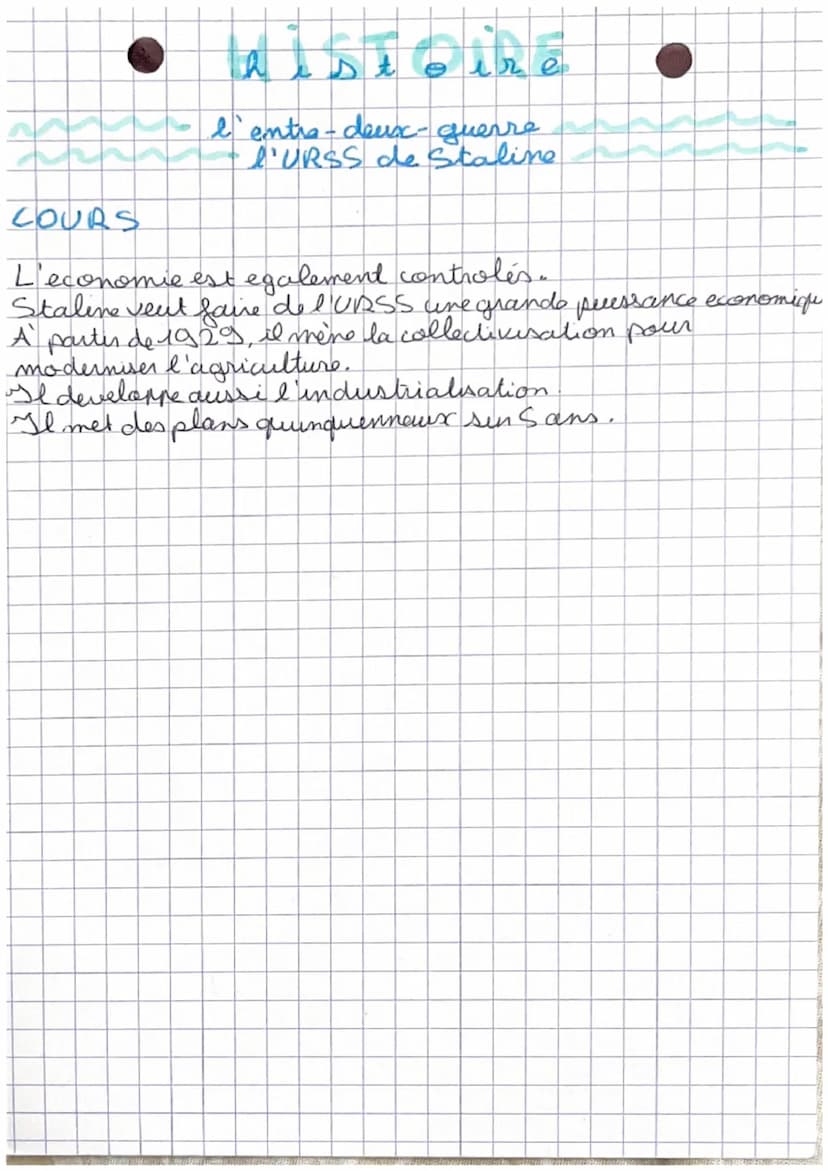 HISTOIRE
histoire
l'entre-deux-guerre
l'URSS de Staline
COURS
L'economie est egalement controlés.
Staline veut faire de l'URSS une grande puissance economique
A' partir de 1929, il mène la collectivisation pour
moderniser l'agriculture.
Il developpe aussi l'industrialisation.
Il met des plans quinquennaux sur 5 ans.